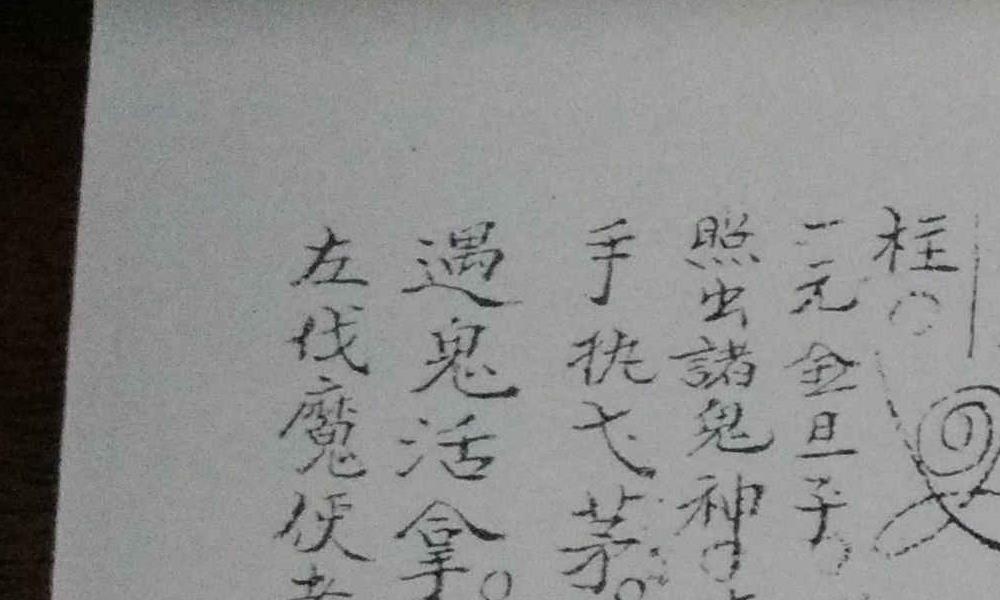 柱。
一元全旦子
照出諸鬼神。
手执弋茅。
遇鬼活拿。
左伐魔使者